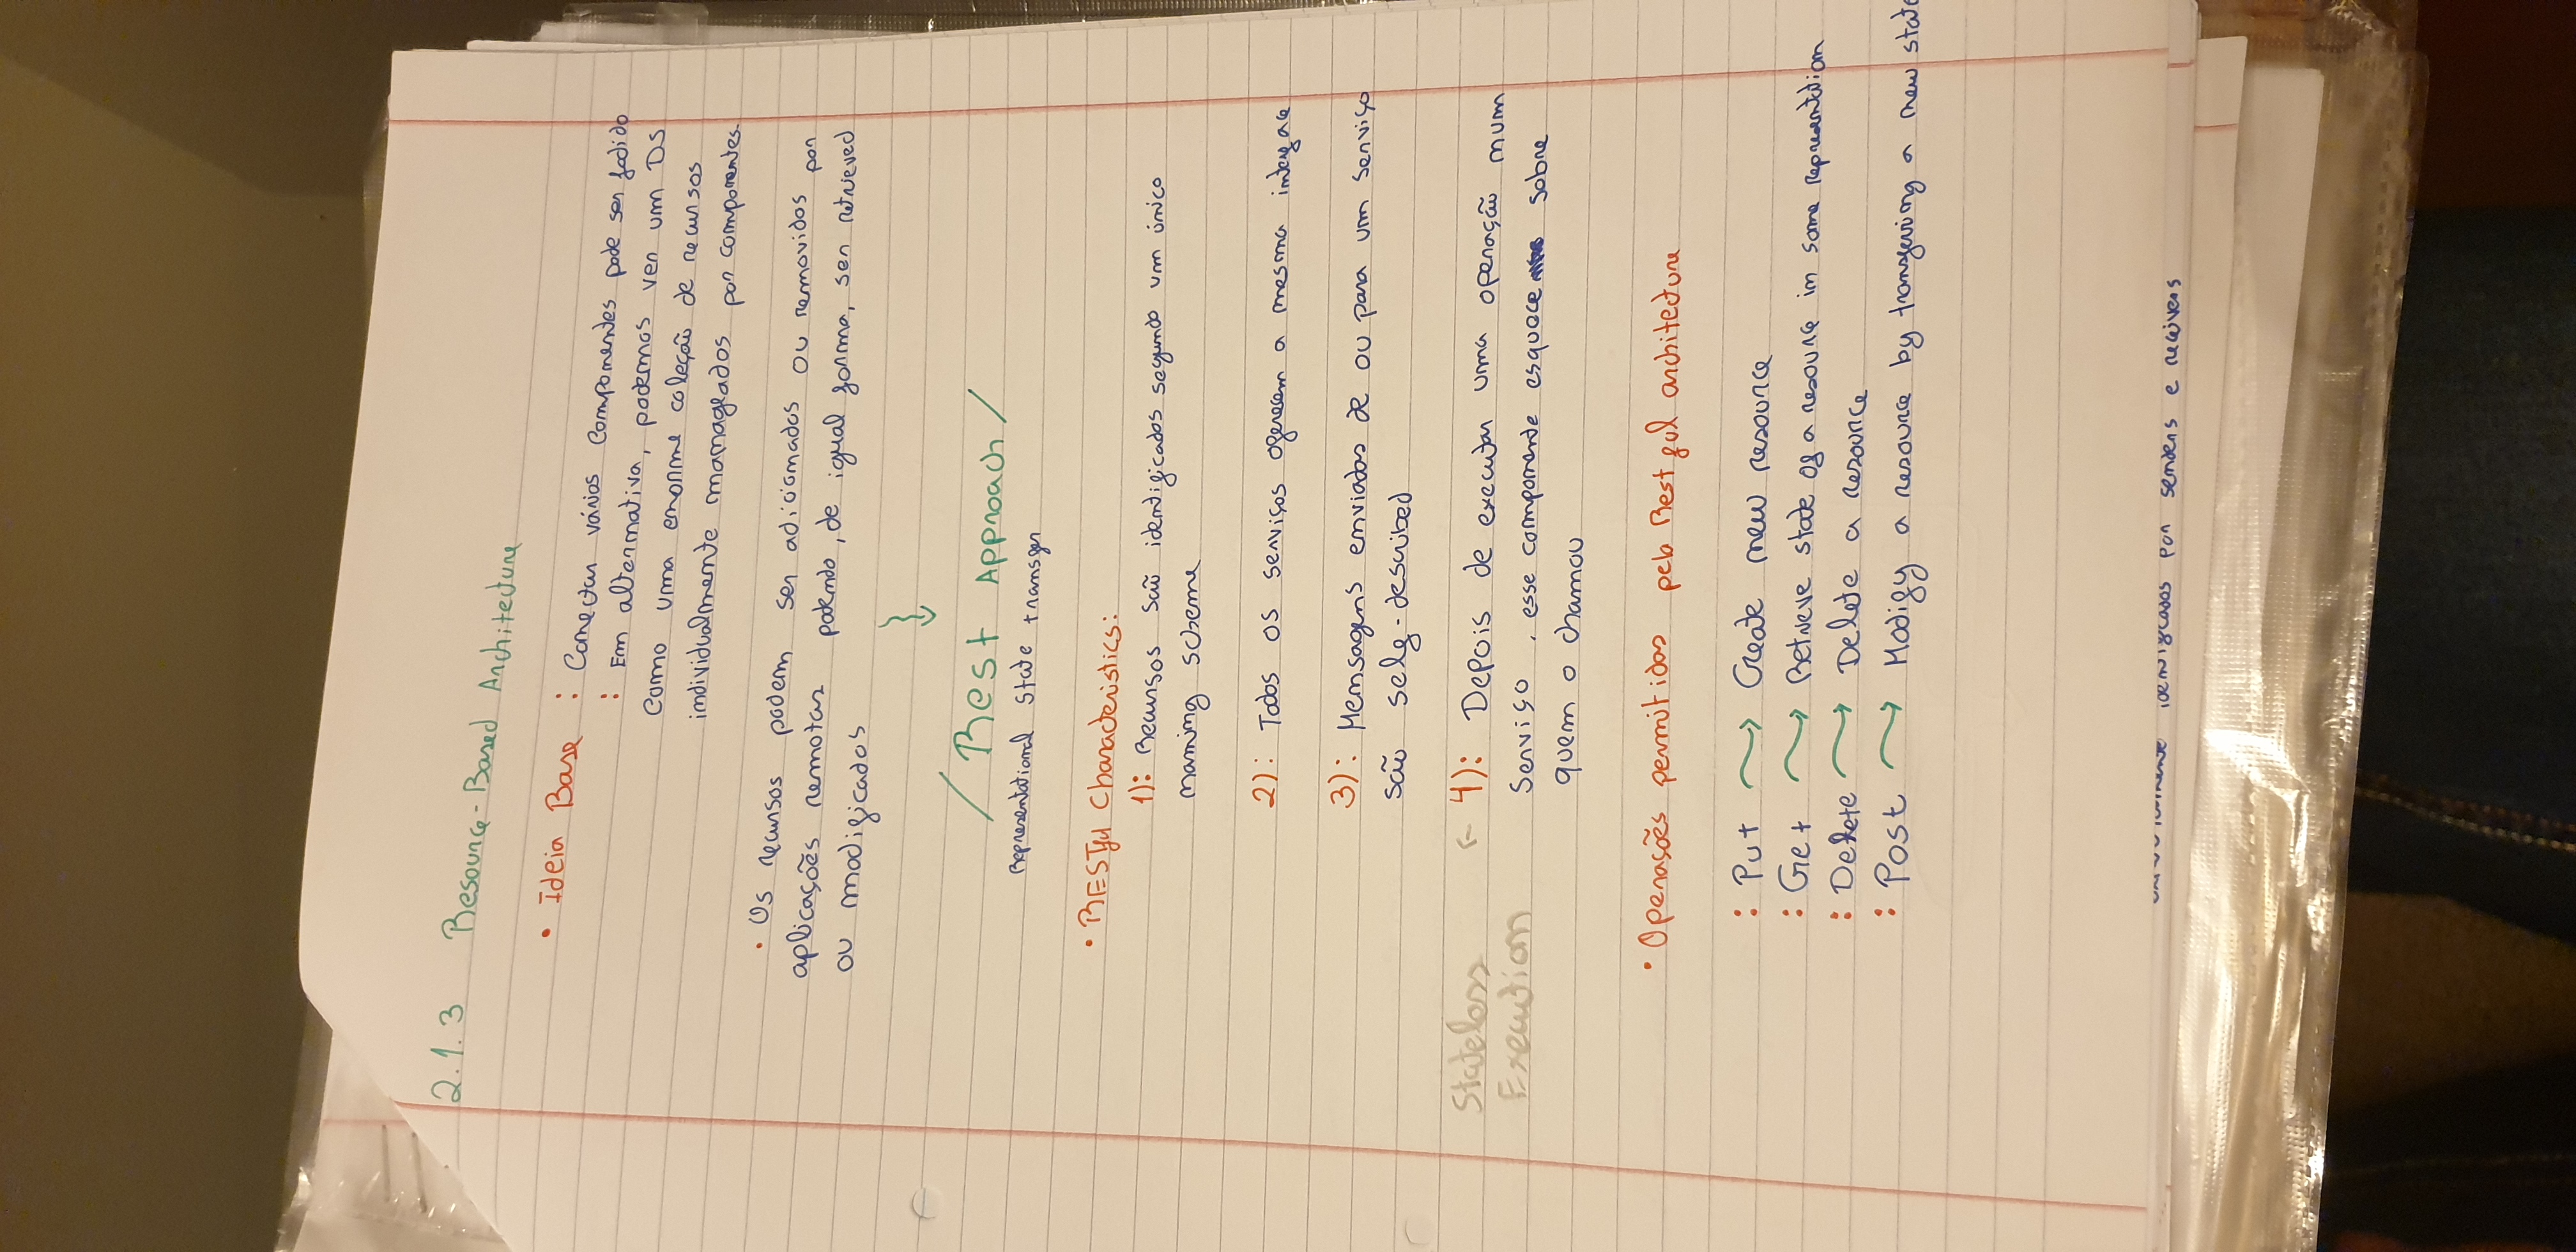 2.1.3 Resource-Based Architecture
• Ideia Base : Conectar vários componentes pode ser fodido
: Em alternativa, podemos ver um DS
como uma enorme coleção de recursos
individualmente manageados por componentes.
• Os recursos podem ser adicionados ou removidos por
aplicações remotas podendo, de igual forma, ser retrieved
ou modificados
/ Rest Approach /
Representational State transfer
• RESTful Characteristics:
1): Recursos são identificados segundo um único
naming scheme
2): Todos os serviços oferecem a mesma interface
3): Mensagens enviadas de ou para um serviço
são self-described
Stateless ← 4): Depois de executar uma operação num
Execution serviço, esse componente esquece sobre
quem o chamou
• Operações permitidas pela Restful architecture
: Put → Create new resource
: Get → Retrieve state of a resource in some representation
: Delete → Delete a resource
: Post → Modify a resource by transferring a new state
identificados por senders e receivers